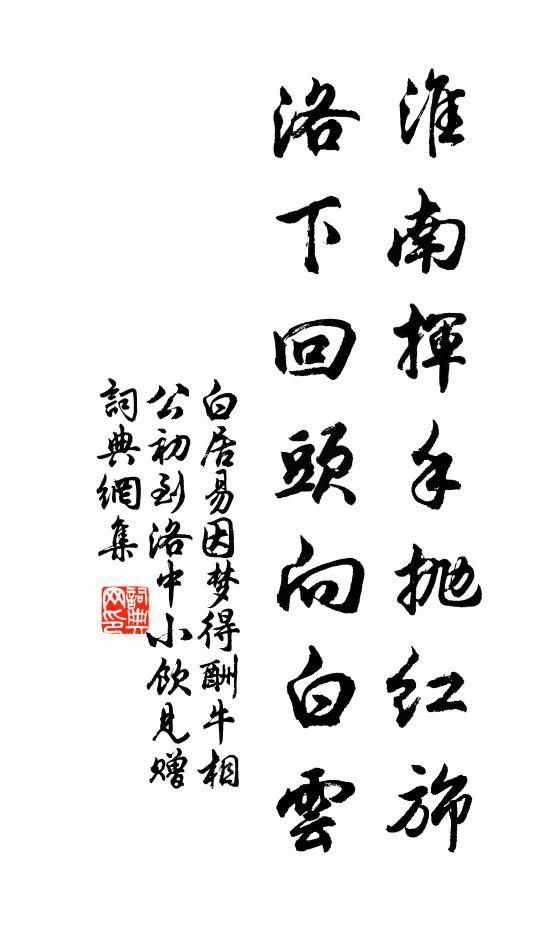 淮南揮手抛红斾
洛下回頭向白雲
白居易因梦得酬牛相
公初到洛中小飲見赠
詞典網集
詞典网印